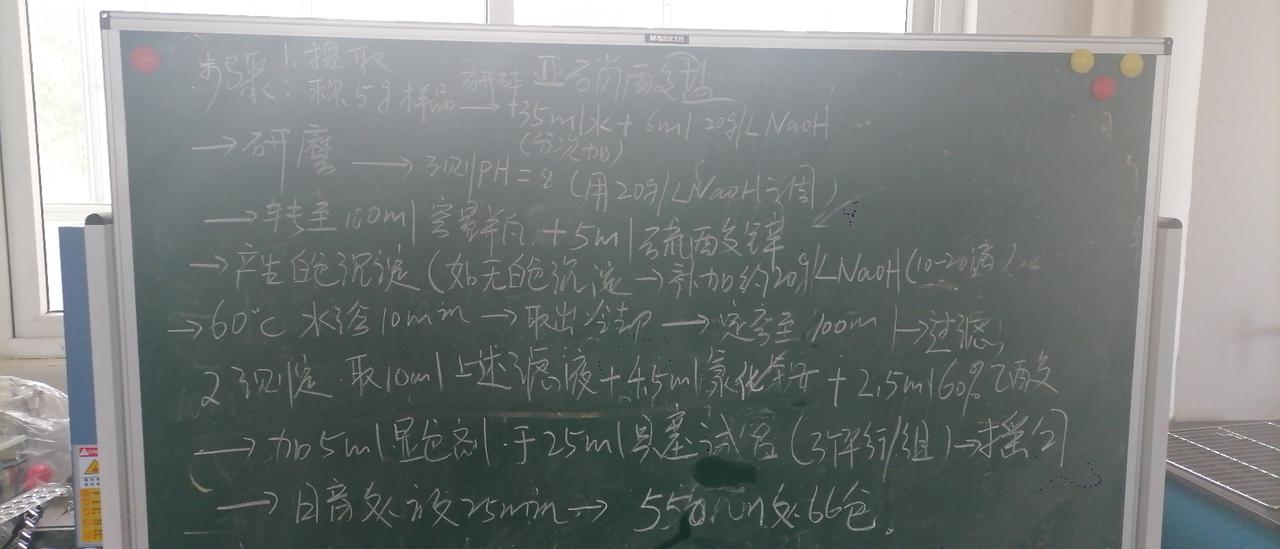 M&G晨光文具
亚硝酸盐
步骤:1.提取
称5g样品 研砵 → +35ml水 + 6ml 20g/L NaOH
(分次加)
→研磨 → 测pH=8 (用20g/L NaOH调)
→转至100ml容量瓶 +5ml硫酸锌
→产生白色沉淀(如无白色沉淀→补加约20g/L NaOH(10-20滴)
→60℃水浴10min→取出冷却→定容至100ml→过滤
2测定.取10ml上述滤液+4.5ml氯化铵 + 2.5ml60%乙酸
→加5ml显色剂.于25ml具塞试管(3平行/组)→摇匀
→暗处放25min→ 550nm处比色.